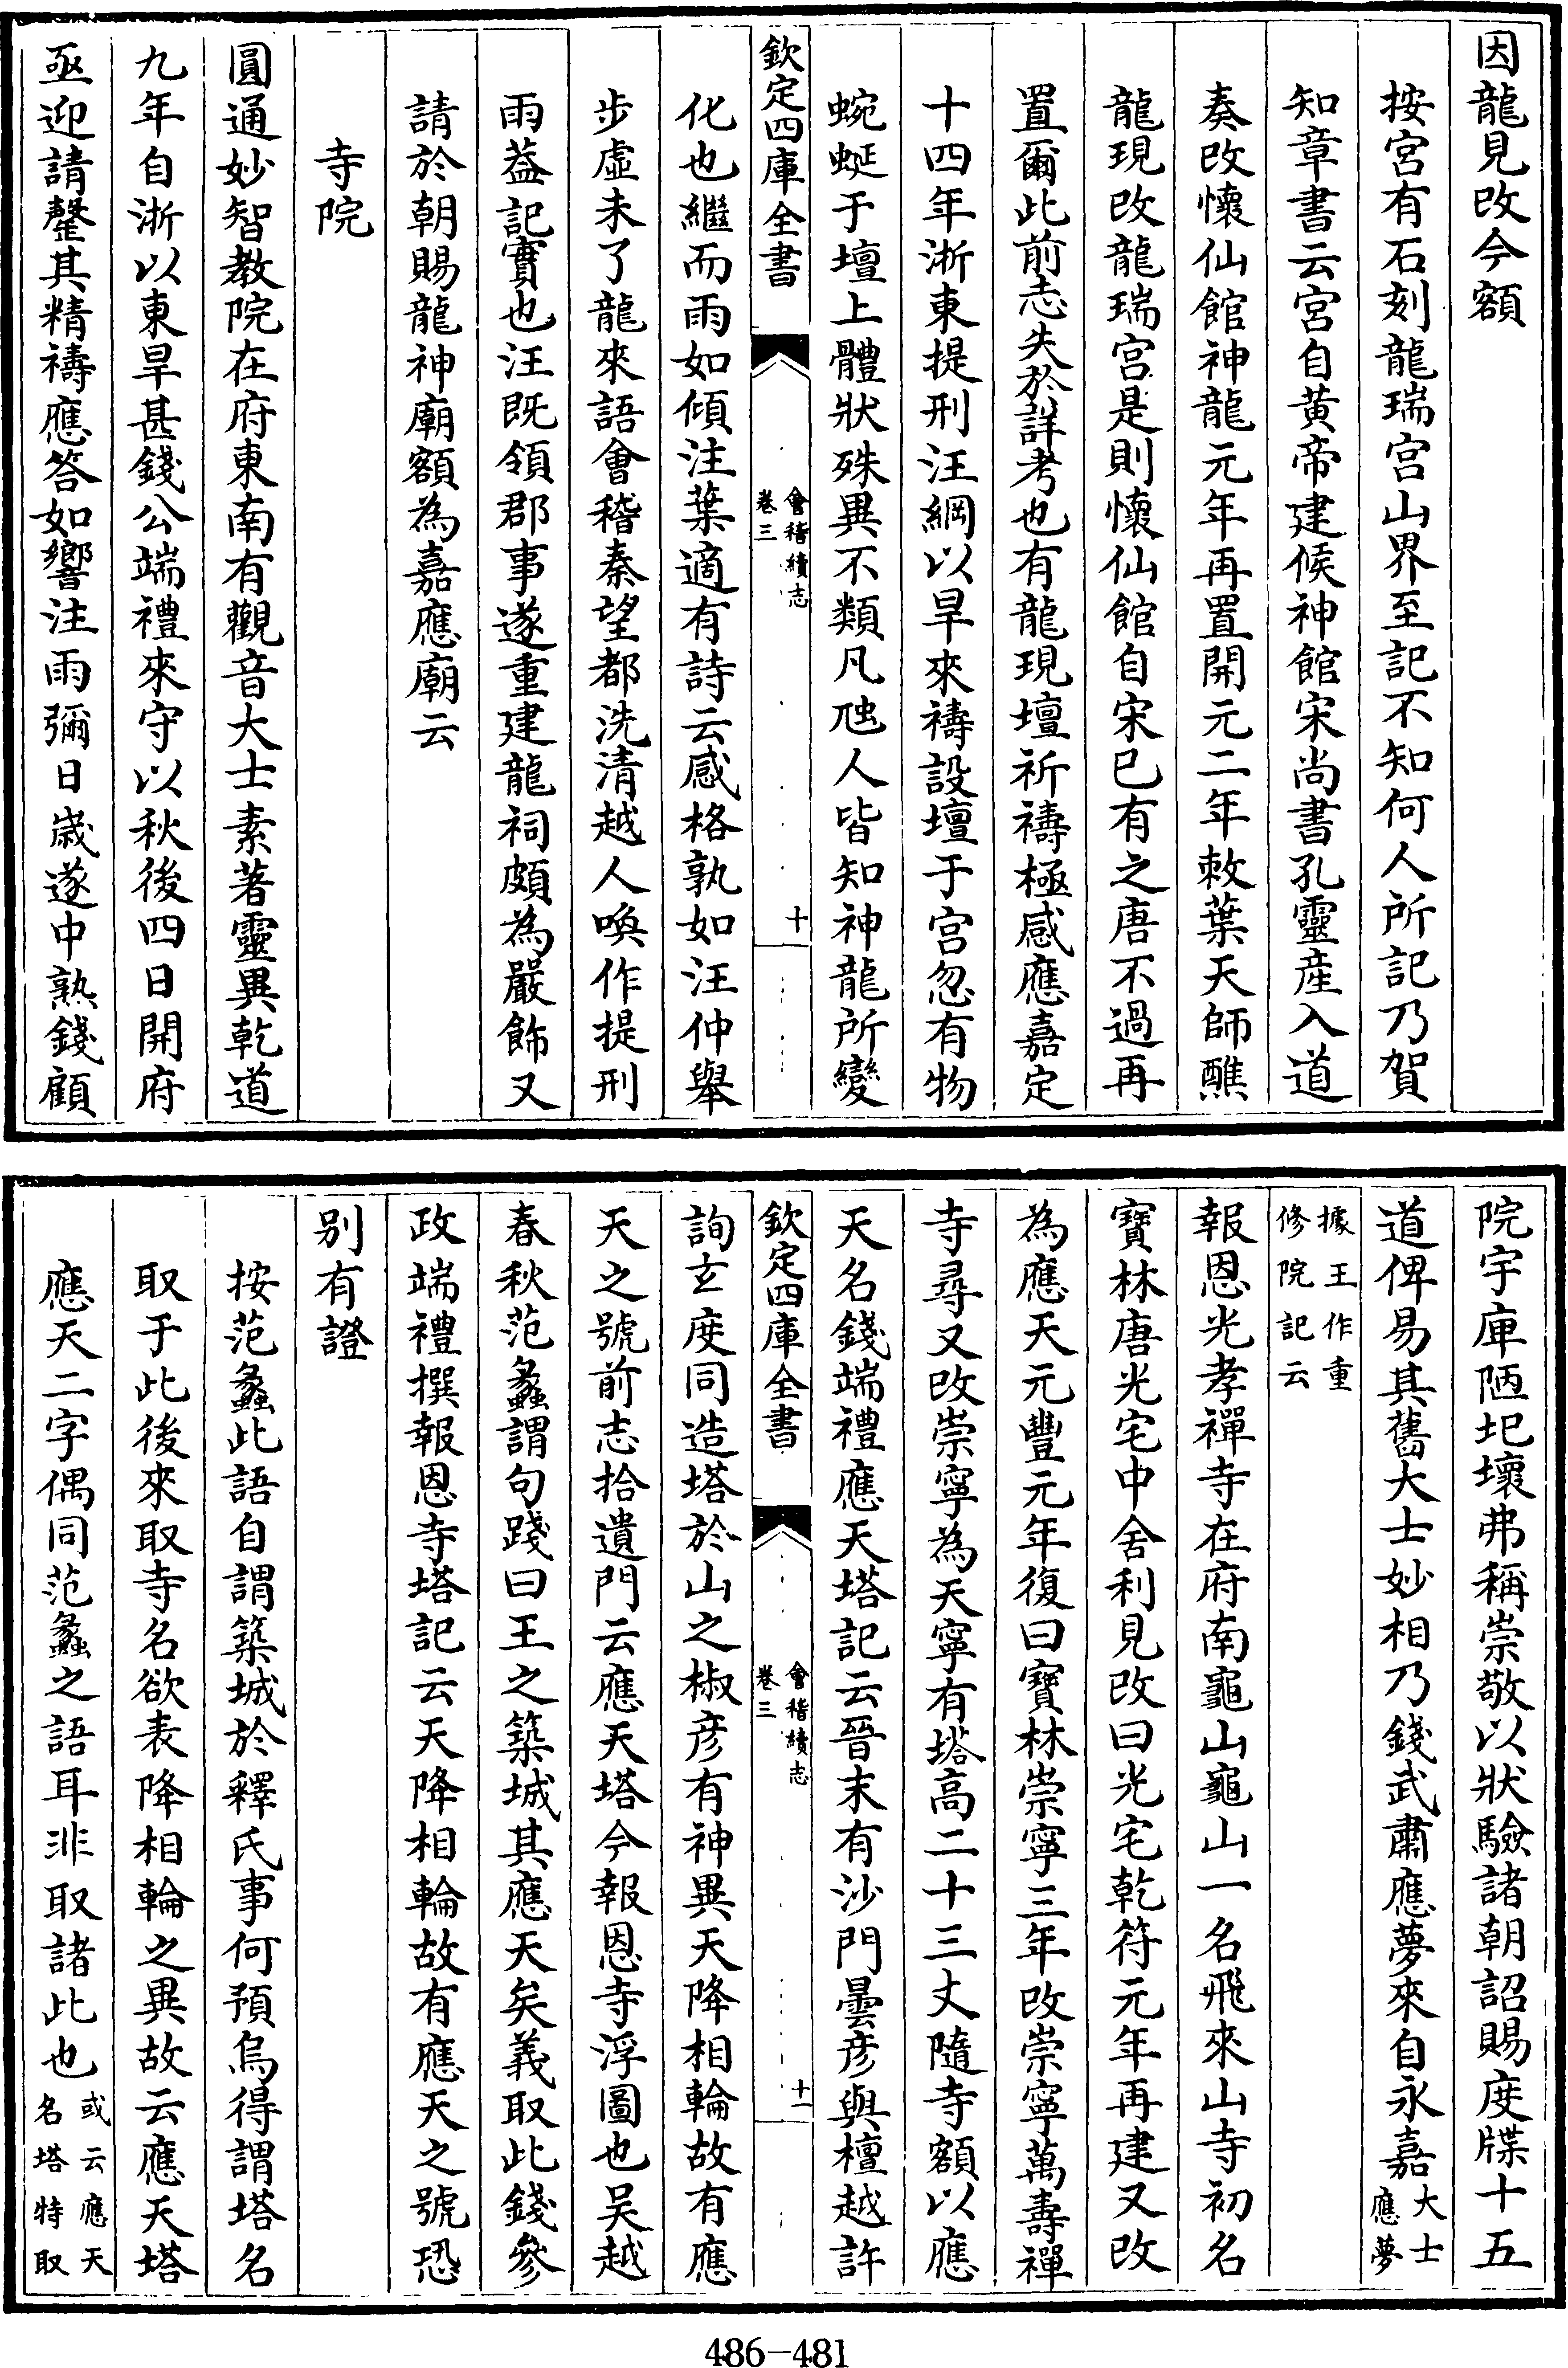 因龍見改今額
按宮有石刻龍瑞宮山界至記不知何人所記乃賀
知章書云宮自黃帝建候神館宋尚書孔靈產入道
奏改懷仙館神龍元年再置開元二年敕葉天師醮
龍現改龍瑞宮是則懷仙館自宋已有之唐不過再
置爾此前志失於詳考也有龍現壇祈禱極感應嘉定
十四年浙東提刑汪綱以旱來禱設壇于宮忽有物
蜿蜒于壇上體狀殊異不類凡虺人皆知神龍所變
欽定四庫全書
會稽續志
卷三
十
化也繼而雨如傾注葉適有詩云感格孰如汪仲舉
步虛未了龍來語會稽秦望都洗清越人喚作提刑
雨葢記實也汪既領郡事遂重建龍祠頗為嚴飾又
請於朝賜龍神廟額為嘉應廟云
寺院
圓通妙智教院在府東南有觀音大士素著靈異乾道
九年自浙以東旱甚錢公端禮來守以秋後四日開府
亟迎請罄其精禱應答如響注雨彌日歲遂中熟錢顧
院宇庫陋圯壞弗稱崇敬以狀驗諸朝詔賜度牒十五
道俾易其舊大士妙相乃錢武肅應夢來自永嘉大士應夢
據王作重修院記云
報恩光孝禪寺在府南龜山龜山一名飛來山寺初名
寶林唐光宅中舍利見改曰光宅乾符元年再建又改
為應天元豐元年復曰寶林崇寧三年改崇寧萬壽禪
寺尋又改崇寧為天寧有塔高二十三丈隨寺額以應
天名錢端禮應天塔記云晉末有沙門曇彥與檀越許
欽定四庫全書
會稽續志
卷三
十一
詢玄度同造塔於山之椒彥有神異天降相輪故有應
天之號前志拾遺門云應天塔今報恩寺浮圖也吳越
春秋范蠡謂句踐曰王之築城其應天矣義取此錢參
政端禮撰報恩寺塔記云天降相輪故有應天之號恐
別有證
按范蠡此語自謂築城於釋氏事何預烏得謂塔名
取于此後來取寺名欲表降相輪之異故云應天塔
應天二字偶同范蠡之語耳非取諸此也或云應天名塔特取
486-481